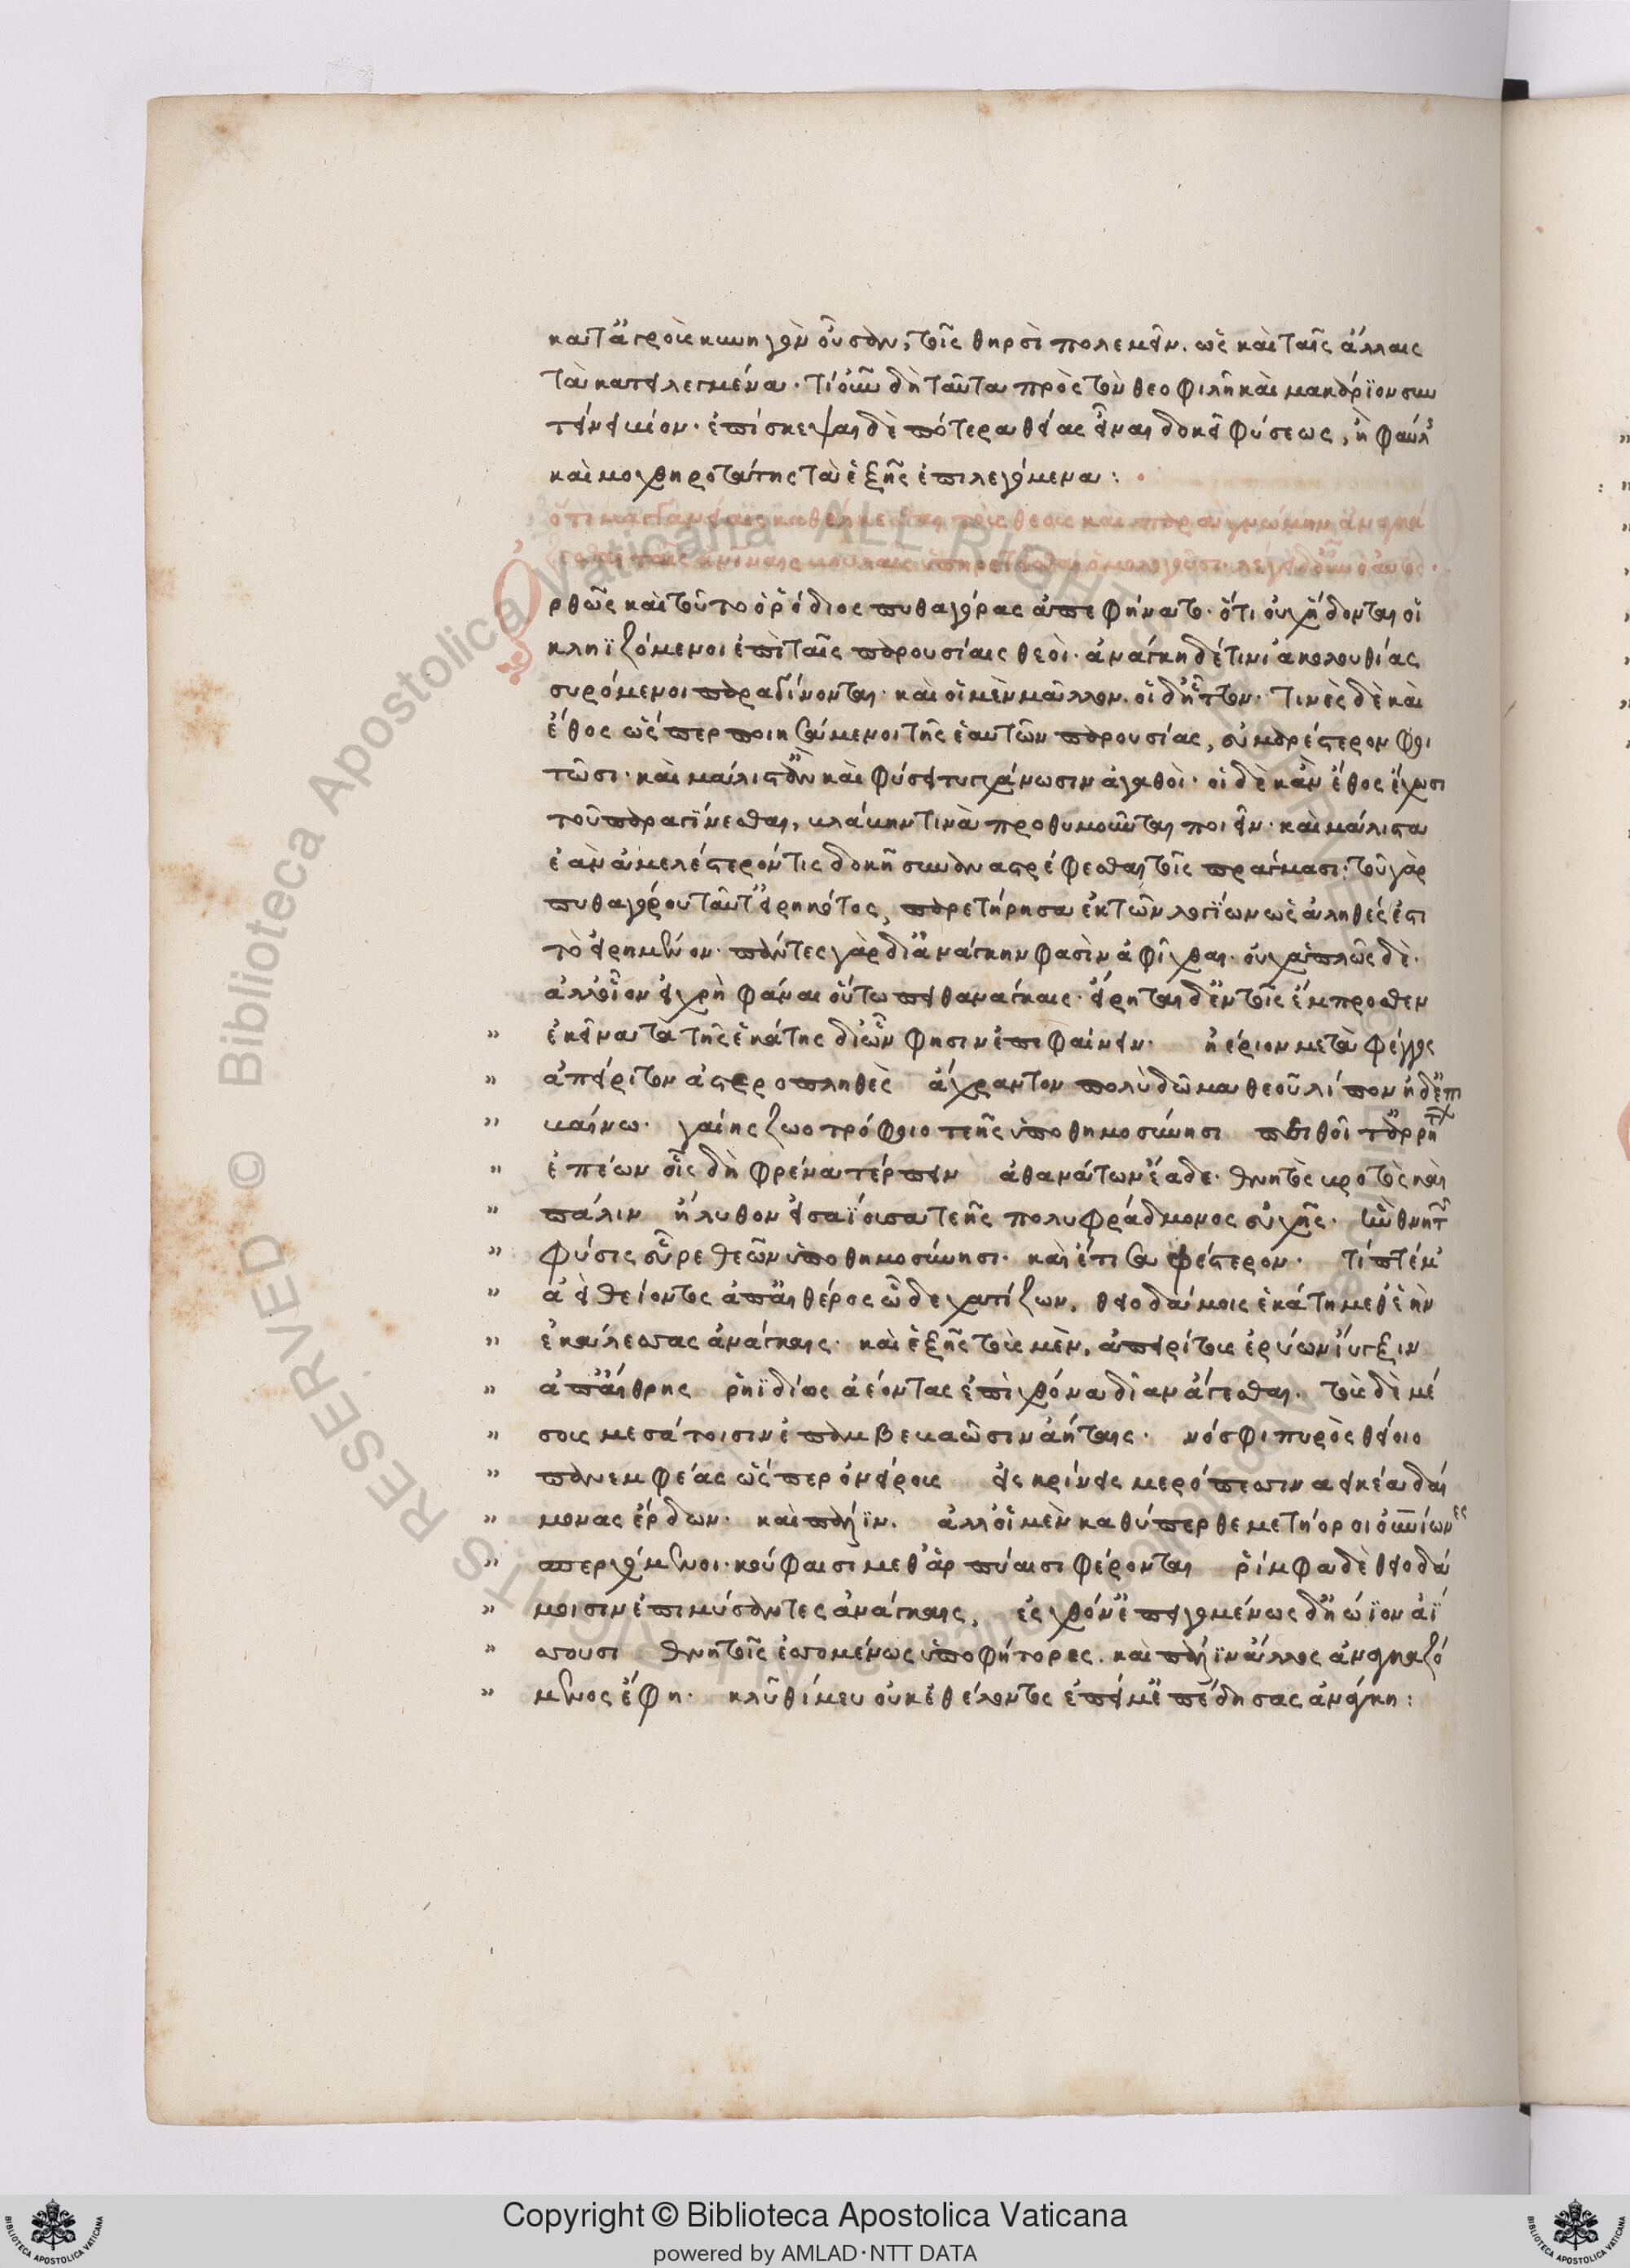 καὶ τὰ ἀγροὺς κυνηγὸν οὖσαν, τοῖς θηρσὶ πολεμεῖν. ὡς καὶ ταῖς ἄλλαις
τὰ κατειλεγμένα. τί οὖν δὴ ταῦτα πρὸς τὸν θεοφιλῆ καὶ μακάριον συν
τείνει βίον. ἐπίσκεψαι δὲ πότερα θείας εἶναι δοκεῖ φύσεως, ἢ φαύλης
καὶ μοχθηροτάτης τὰ ἑξῆς ἐπιλεγόμενα:
ρθῶς καὶ τοῦτο ὁ ῥόδιος πυθαγόρας ἀπεφήνατο. ὅτι οὐχ ἥδονται οἱ
κληϊζόμενοι ἐπὶ ταῖς παρουσίαις θεοί. ἀνάγκῃ δέ τινι ἀκολουθίας
συρόμενοι παραγίνονται. καὶ οἱ μὲν μᾶλλον. οἱ δ' ἧττον. τινὲς δὲ καὶ
ἔθος ὥσπερ ποιησάμενοι τῆς ἑαυτῶν παρουσίας, εὐμαρέστερον φοι
τῶσι. καὶ μάλιστ' ἂν καὶ φύσει τυγχάνωσιν ἀγαθοί. οἱ δὲ κἂν ἔθος ἔχωσι
τοῦ παραγίνεσθαι, βλάβην τινὰ προθυμοῦνται ποιεῖν. καὶ μάλιστα
ἐὰν ἀμελέστερόν τις δοκῇ συναναστρέφεσθαι τοῖς πράγμασι. τοῦ γὰρ
πυθαγόρου ταῦτ' εἰρηκότος, παρετήρησα ἐκ τῶν λογίων ὡς ἀληθές ἐστι
τὸ εἰρημένον. πάντες γὰρ δι' ἀνάγκην φασὶν ἀφῖχθαι. οὐχ ἁπλῶς δὲ.
ἀλλ' οἷον εἰ χρὴ φάναι οὕτω πειθανάγκαις. εἴρηται δ' ἐν τοῖς ἔμπροσθεν
" ἐκεῖνα τὰ τῆς ἑκάτης δι' ὧν φησιν ἐπιφαίνειν. ἠέριον μετὰ φέγγος
" ἀπείριτον ἀστεροπληθὲς ἄχραντον πολὺ δῶμα θεοῦ λίπον ἠδ' ἐπι
" βαίνω. γαίης ζωοτρόφοιο τεῇς ὑποθημοσύνῃσι πειθοῖ τ' ἀρρήτων
" ἐπέων οἷς δὴ φρένα τέρπειν ἀθανάτων ἔαδε. θνητὸς βροτὸς καὶ
" πάλιν ἤλυθον εἰσαΐουσα τεῆς πολυφράδμονος εὐχῆς. ἣν θνητῶν
" φύσις εὗρε θεῶν ὑποθημοσύνῃσι. καὶ ἔτι σαφέστερον. τίπτέ μ'
" ἀεὶ θείοντος ἀπ' αἰθέρος ὧδε χατίζων, θειοδάμοις ἑκάτην με θεὴν
" ἐκάλεσσας ἀνάγκαις. καὶ ἑξῆς τοὺς μὲν, ἀπειρίτους ἐρύων ἴυγξιν
" ἀπ' αἴθρης ῥηϊδίως ἀέοντας ἐπὶ χθόνα δῖαν ἄγεσθαι. τοὺς δὲ μέ
" σοις μεσάτοισιν ἐπεμβεβαῶσιν ἀήταις. νόσφι πυρὸς θείοιο
" πανεμφέας ὥσπερ ὀνείρους εἰσκρίνεις μερόπεσσιν ἀεικέα δαί
" μονας ἔρδων. καὶ πάλιν. ἀλλ' οἱ μὲν καθύπερθε μετήοροι οὐρανίωνες
" ἀπεργόμενοι. κούφαισι μεθ' ἁρπυίαισι φέρονται ῥίμφα δὲ θειοδά
" μοισιν ἐπιμύσαντες ἀνάγκαις, ἐς χθόν' ἐπειγομένως δηώϊον ἀΐ
" σσουσι θνητοῖς ἐσσομένως ὑποφήτορες. καὶ πάλιν ἄλλος ἀναγκαζό
" μενος ἔφη. κλῦθί μευ οὐκ ἐθέλοντος ἐπεί μ' ἐπέδησας ἀνάγκῃ:
Copyright © Biblioteca Apostolica Vaticana
powered by AMLAD·NTT DATA